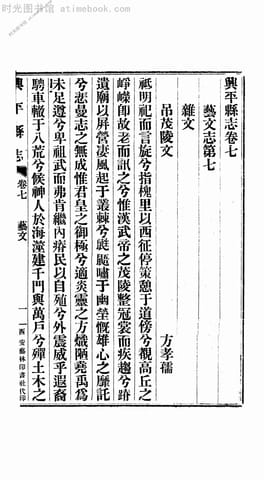 时光图书馆 www.timebook.com
興平縣志卷七
藝文志第七
雜文
弔茂陵文
方孝儒
祗明祀而言旋兮指槐里以西征停策憩于道傍兮覩高丘之
崢嶸卽故老而訊之兮惟漢武帝之茂陵整冠裳而疾趨兮跡
遺廟以屏營淒風起于叢棘兮鼪鼯嘯于幽塋慨雄心之靡託
兮悲曼志之無成惟君皇之御極兮適炎靈之方熾陋堯禹爲
未足遵兮畀祖武而弗肯繼內瘠民以自殖兮外震威乎遐裔
騁車轍于八荒兮候神人於海澨建千門與萬戶兮殫土木之
興平縣志
卷七
藝文
一
西安藝林印書社代印